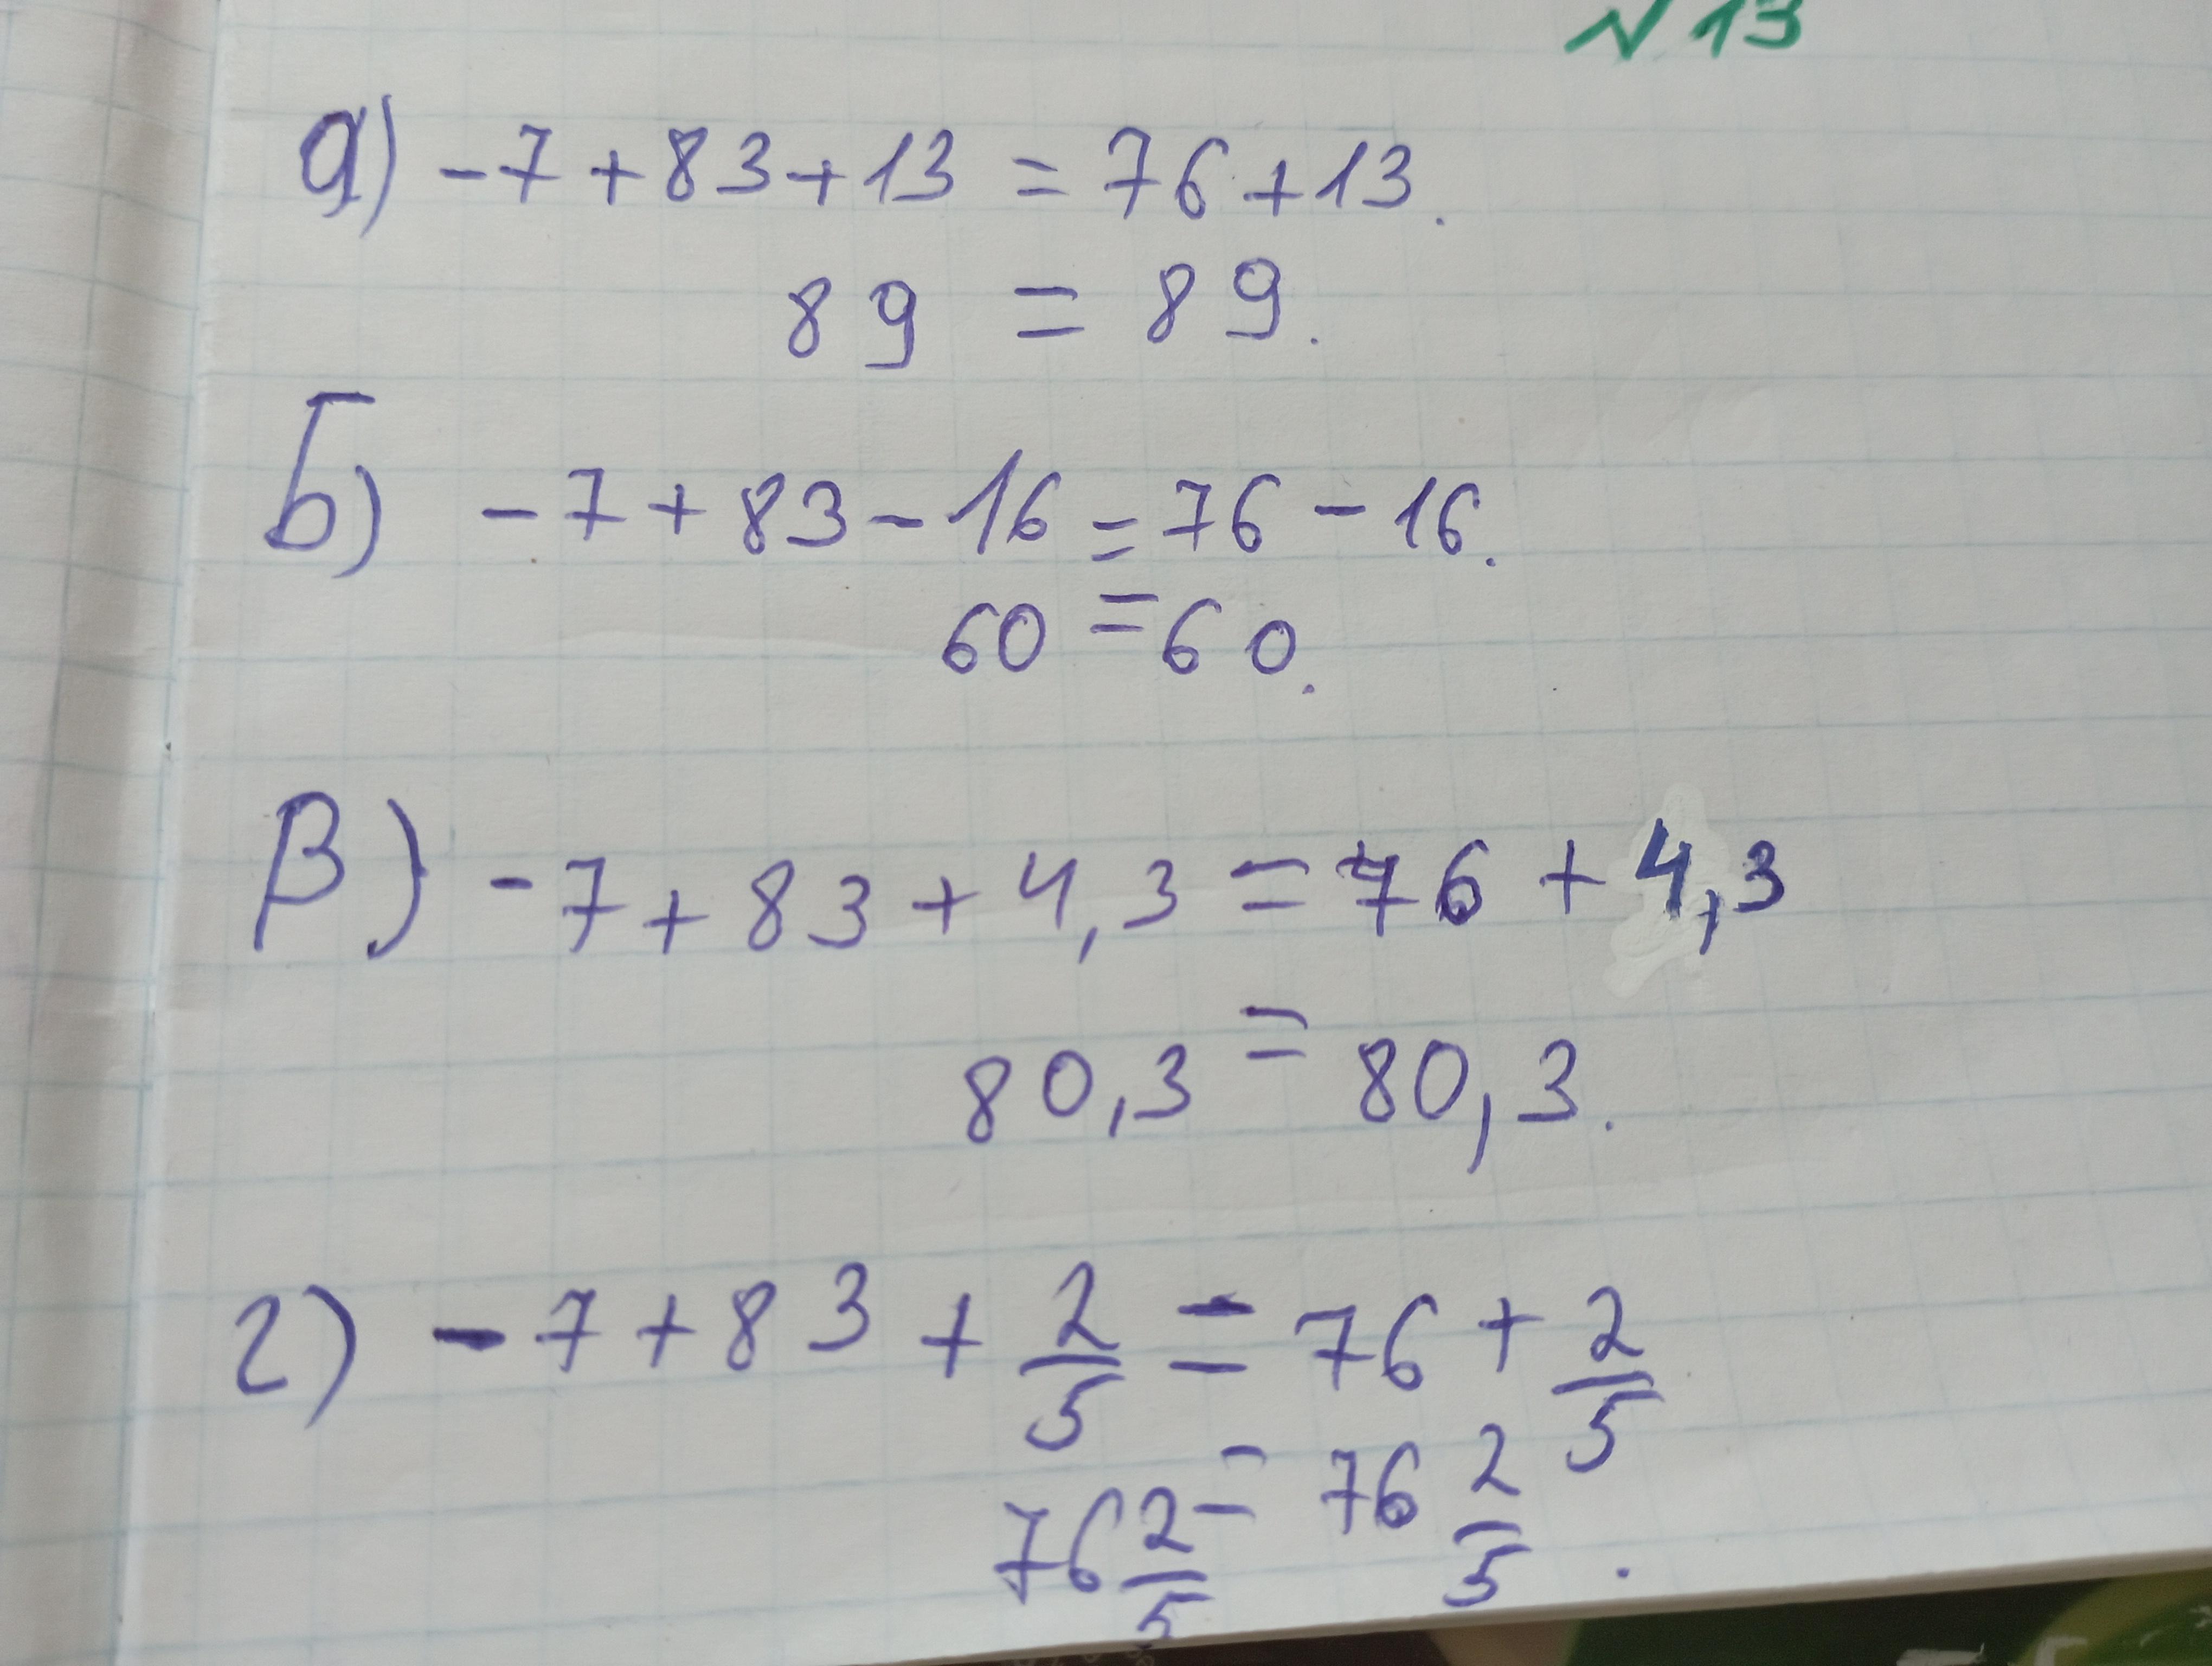 № 13
а) -7 + 83 + 13 = 76 + 13.
89 = 89.
б) -7 + 83 - 16 = 76 - 16.
60 = 60.
в) -7 + 83 + 4,3 = 76 + 4,3
80,3 = 80,3.
г) -7 + 83 + 2/5 = 76 + 2/5
76 2/5 = 76 2/5.